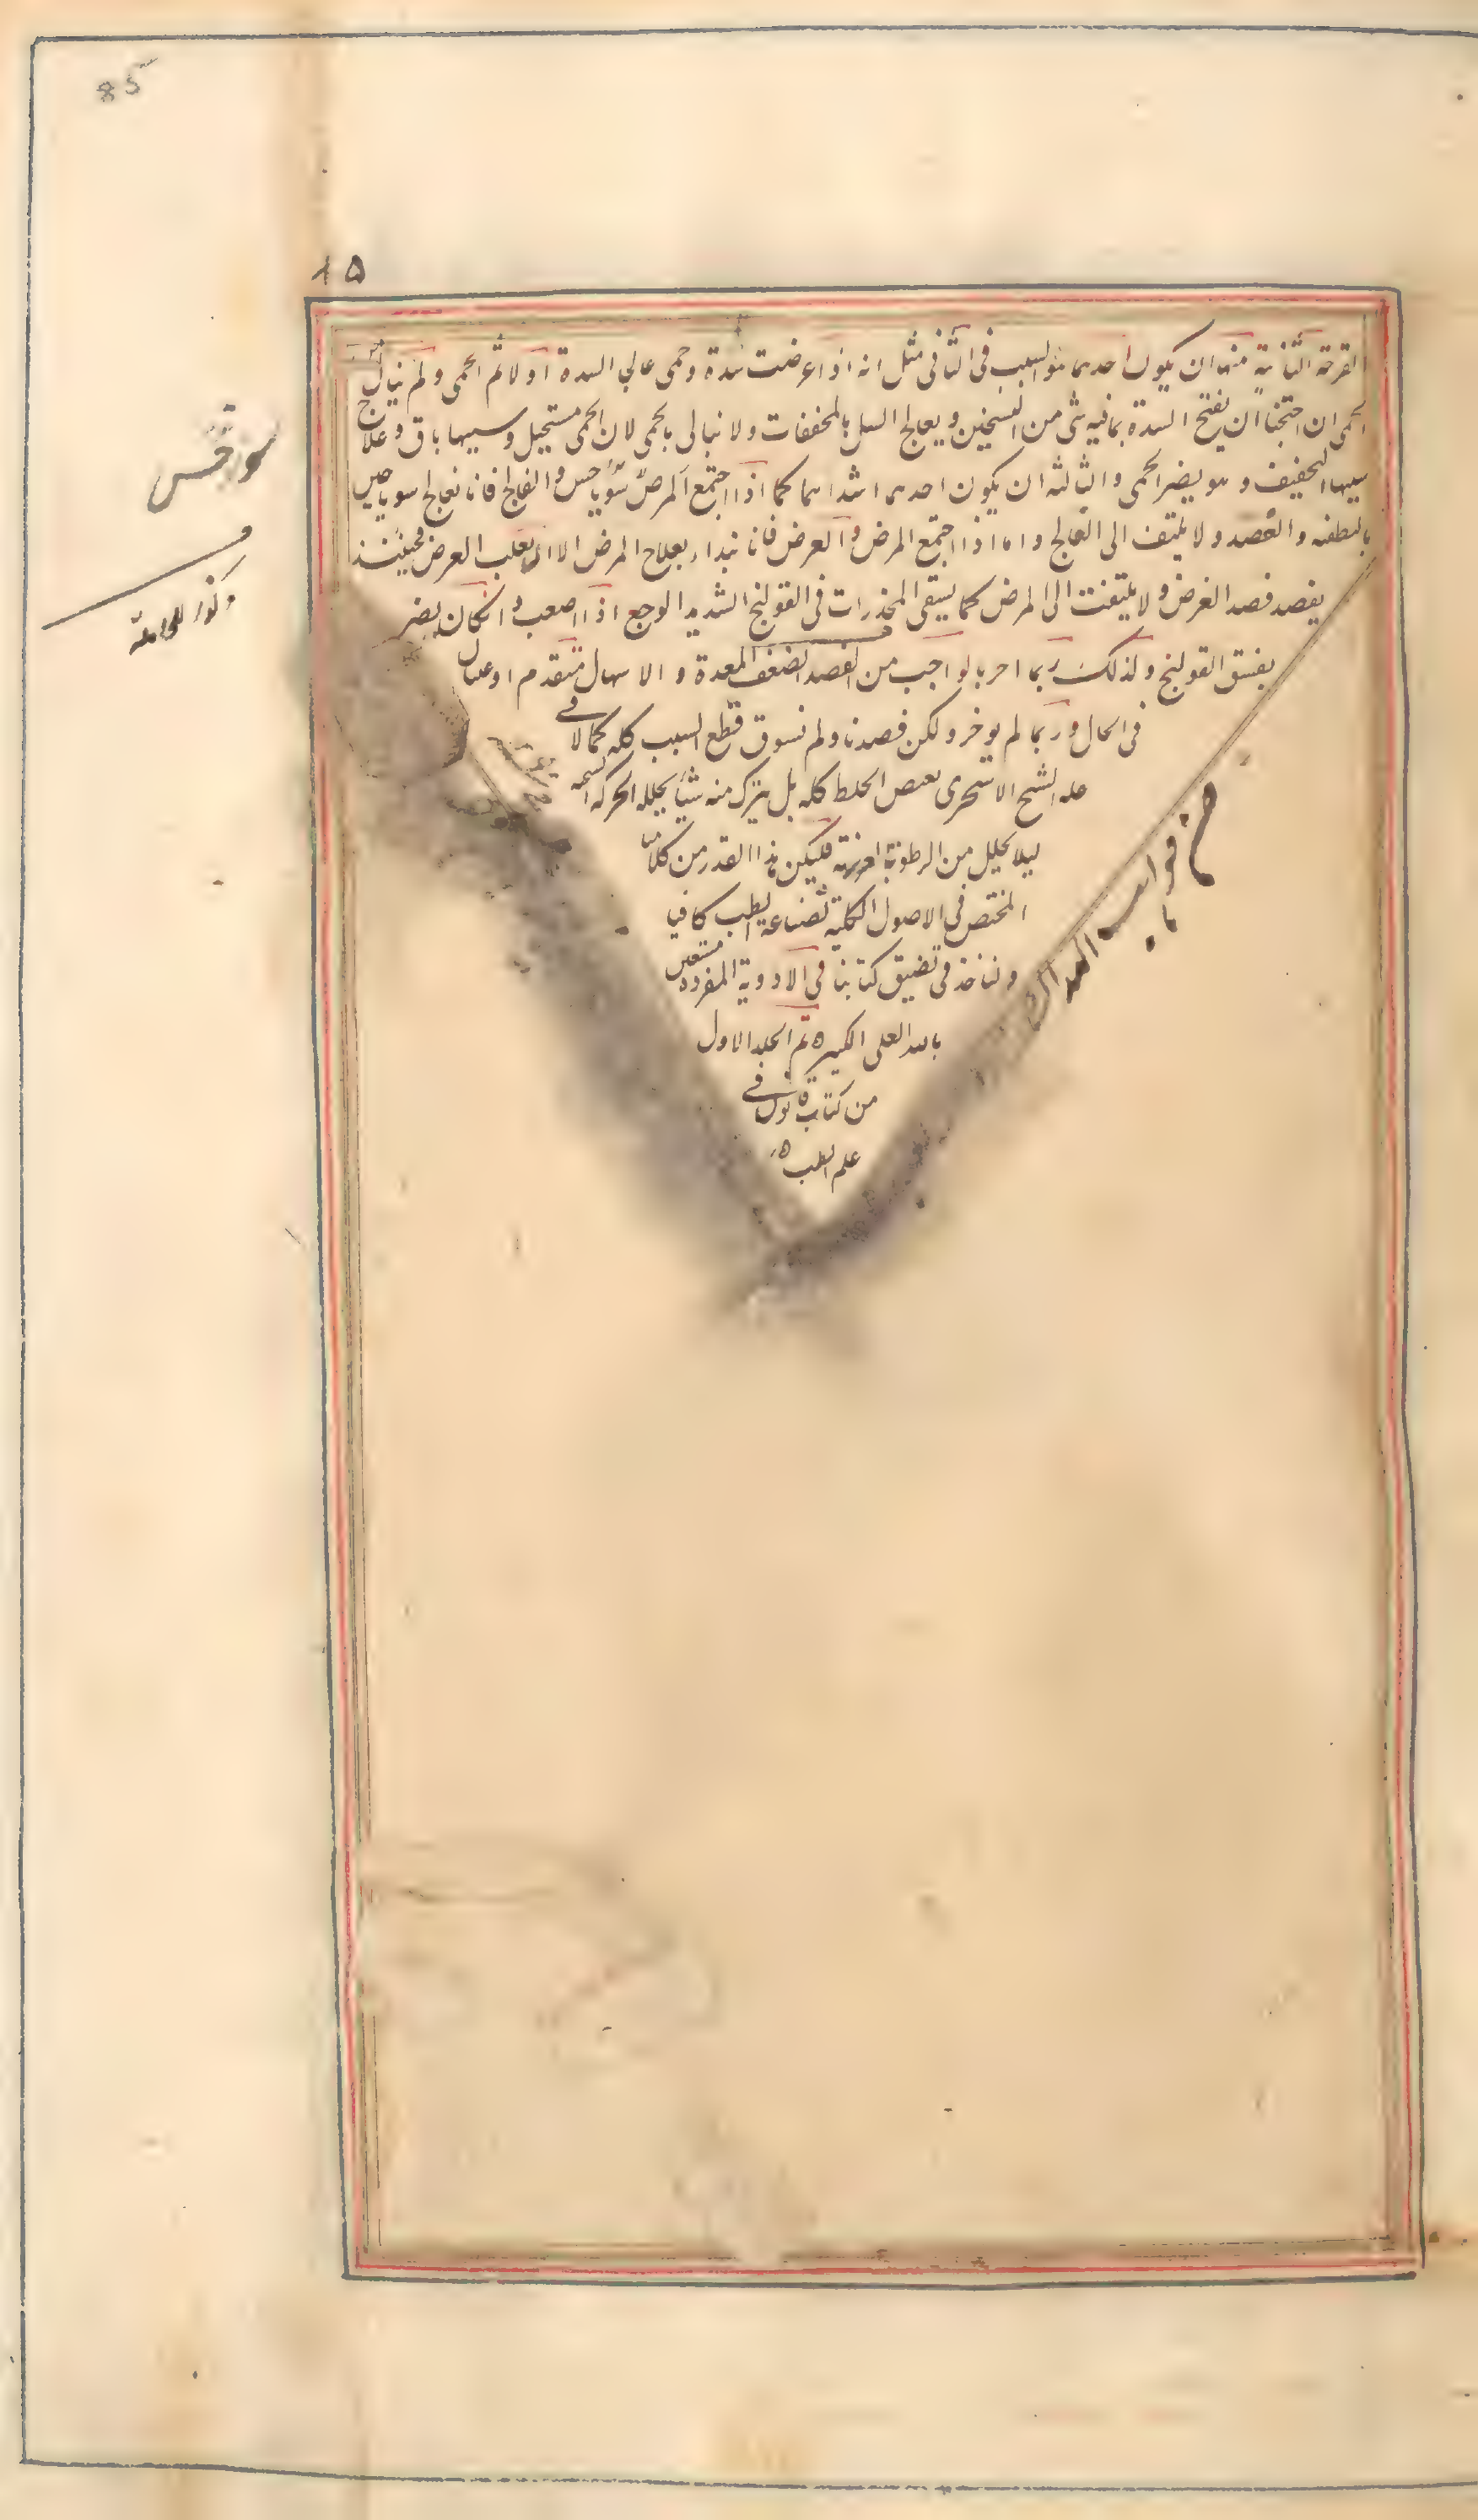 85
٨٥
القرحة الثانية منها ان يكون احدهما هو السبب فى الثانى مثل انه اذا عرضت سدة وحمى عالج السدة اولا ثم الحمى ولم نبال
الحمى ان احتجنا ان يفتح السدة بما فيه شئ من التسخين ويعالج السل بالمجففات ولا نبالى بالحمى لان الحمى مستحيل وسببها باق وعلاج
سببها التجفيف وهو يضر الحمى والثالثة ان يكون احدهما اشدهما كما اذا اجتمع المرض سوناخس والفالج فانا نعالج سوناخس
بالتطفئه والفصد ولا يلتفت الى الفالج واما اذا اجتمع المرض والعرض فانا نبداء بعلاج المرض الا ان يغلب العرض فحينئذ
يقصد قصد العرض ولا يلتفت الى المرض كما يسقى المخدرات فى القولنج الشديد الوجع اذا صعب وان كان يضر
بنفس القولنج ولذلك ربما اخرنا الواجب من الفصد لضعف المعدة والاسهال متقدم او غثيان
فى الحال وربما لم يوخر ولكن فصدنا ولم نسوق قطع السبب كله كما انا فى
علة التشنج لا نتحرى نفض الخلط كله بل نترك منه شيئا يحلله الحركة التشنجيه
ليلا تحلل من الرطوبة الغريزيه فليكن هذا القدر من كلامنا
المختصر فى الاصول الكلية لصناعة الطب كافيا
ولناخذ فى تصنيف كتابنا فى الادوية المفرده مستعين
بالله العلى الكبير ه تم الجلد الاول
من كتاب قانون فى
علم الطب ه
سوناخس